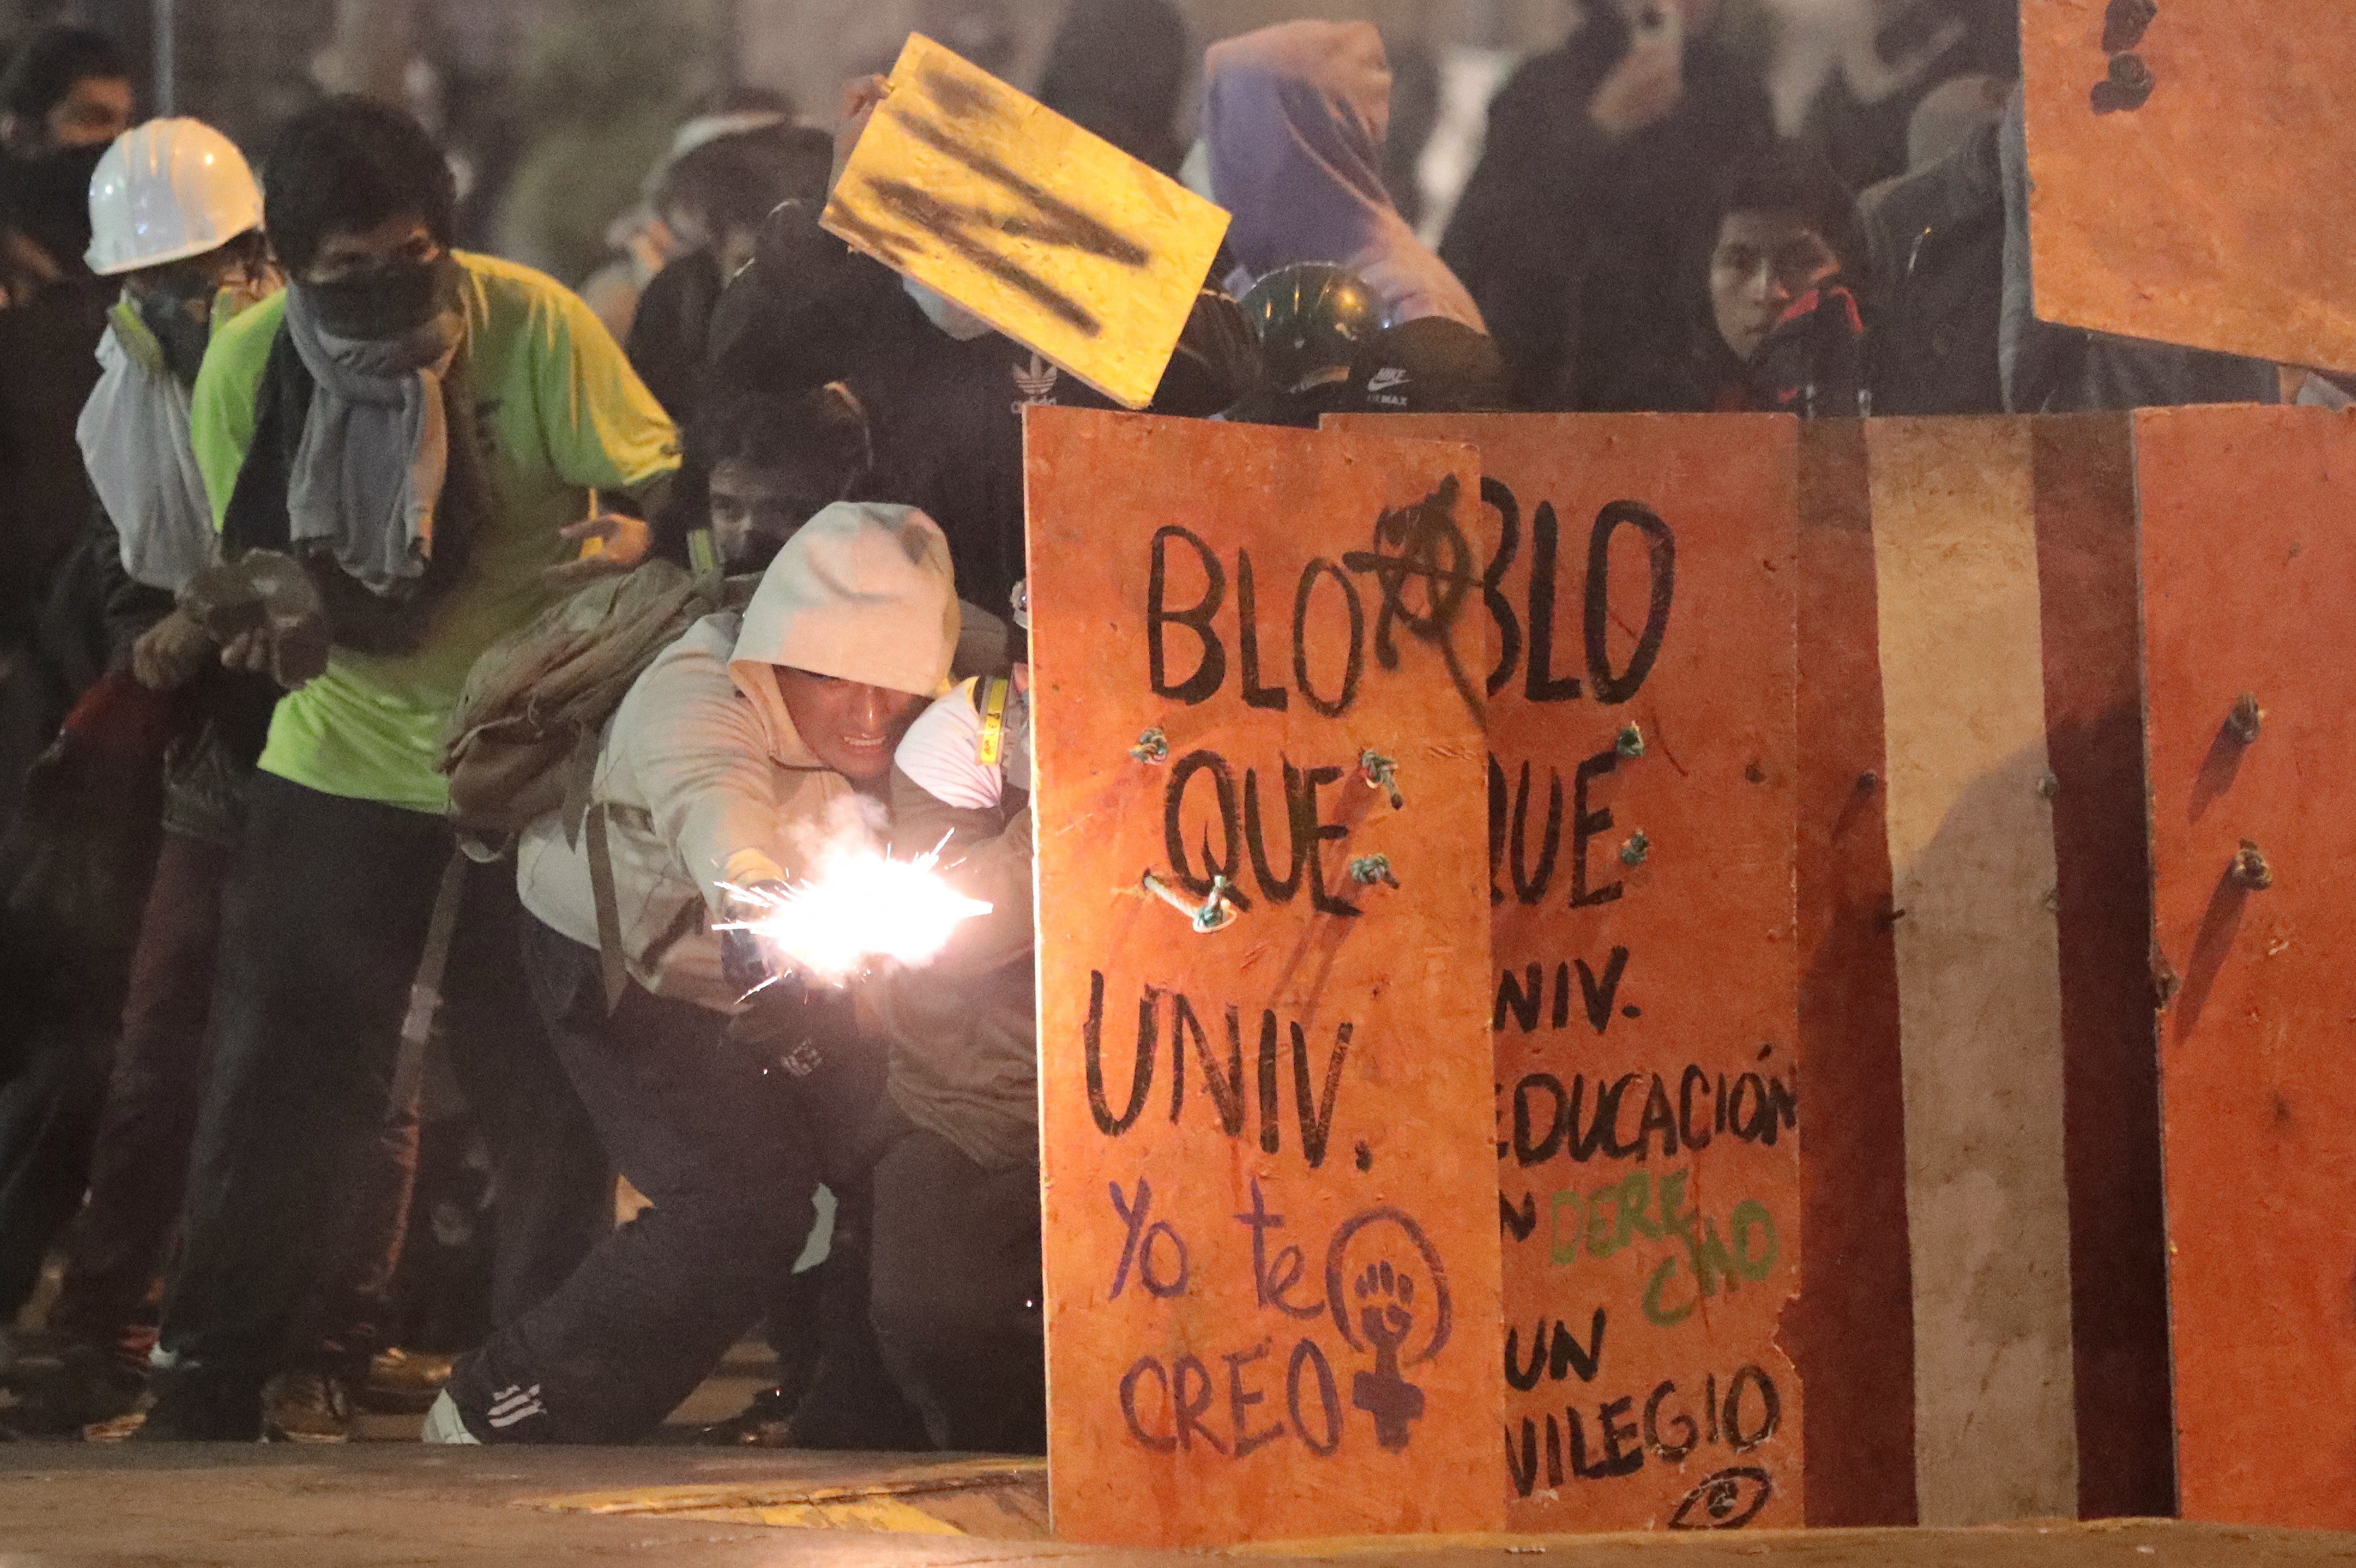 BLO
QUE
UNIV.
Yo te
CREO
BLO
UE
NIV.
EDUCACIÓN
N DERE
CHO
UN
VILEGIO
NIKE
AIR MAX
adidas